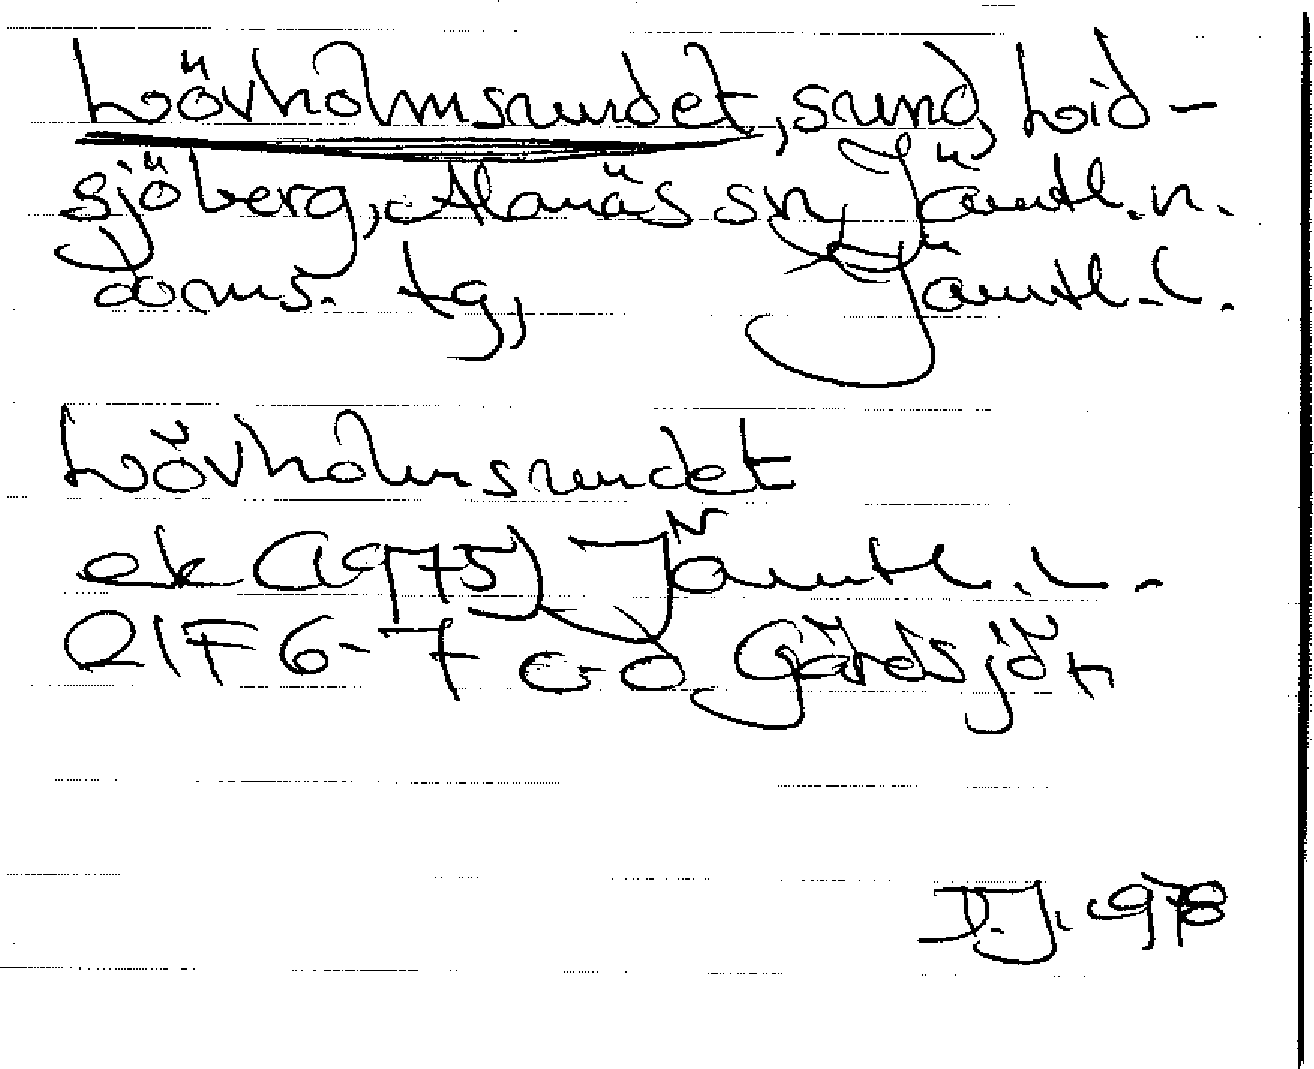 Lövholmsundet, sund, Lid-
sjöberg, Alanäs sn, Jämtl. n.
doms. tg, Jämtl. l.
Lövholmsundet
ek (1975) Jämtl. L.
21F 6-7 c-d Gärdsjön
D.J. 1978